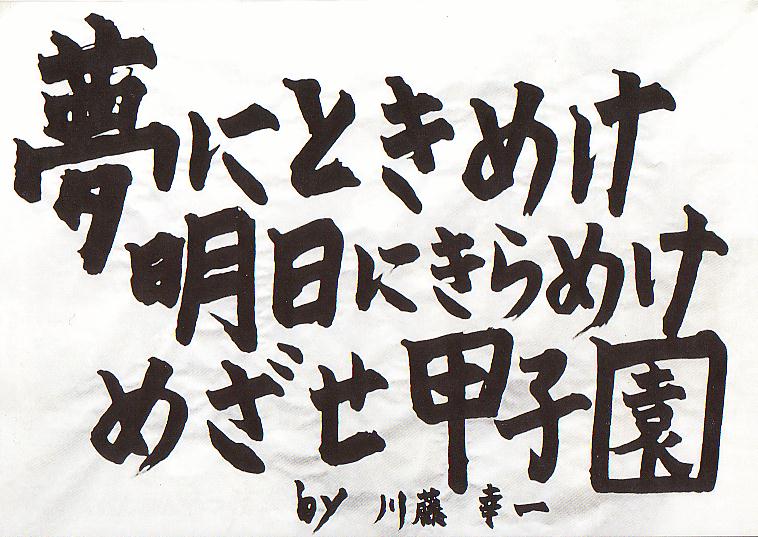 夢にときめけ
明日にきらめけ
めざせ甲子園
by 川藤 幸一